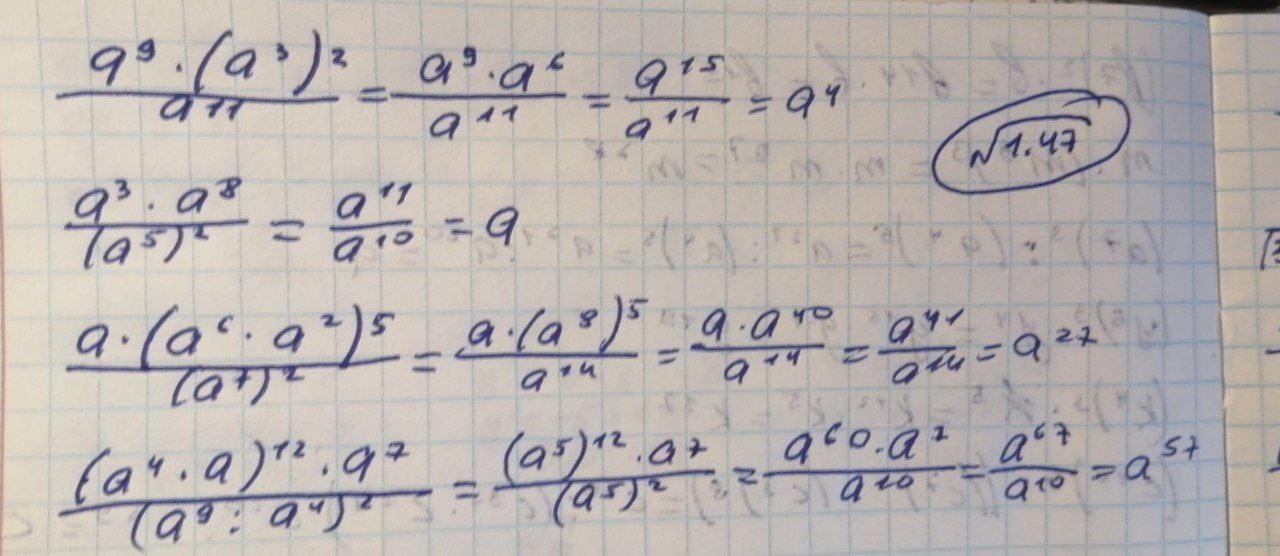 a⁹ · (a³)² / a¹¹ = a⁹ · a⁶ / a¹¹ = a¹⁵ / a¹¹ = a⁴
√1.47
a³ · a⁸ / (a⁵)² = a¹¹ / a¹⁰ = a
a · (a⁶ · a²)⁵ / (a⁷)² = a · (a⁸)⁵ / a¹⁴ = a · a⁴⁰ / a¹⁴ = a⁴¹ / a¹⁴ = a²⁷
(a⁴ · a)¹² · a⁷ / (a⁹ : a⁴)² = (a⁵)¹² · a⁷ / (a⁵)² = a⁶⁰ · a⁷ / a¹⁰ = a⁶⁷ / a¹⁰ = a⁵⁷